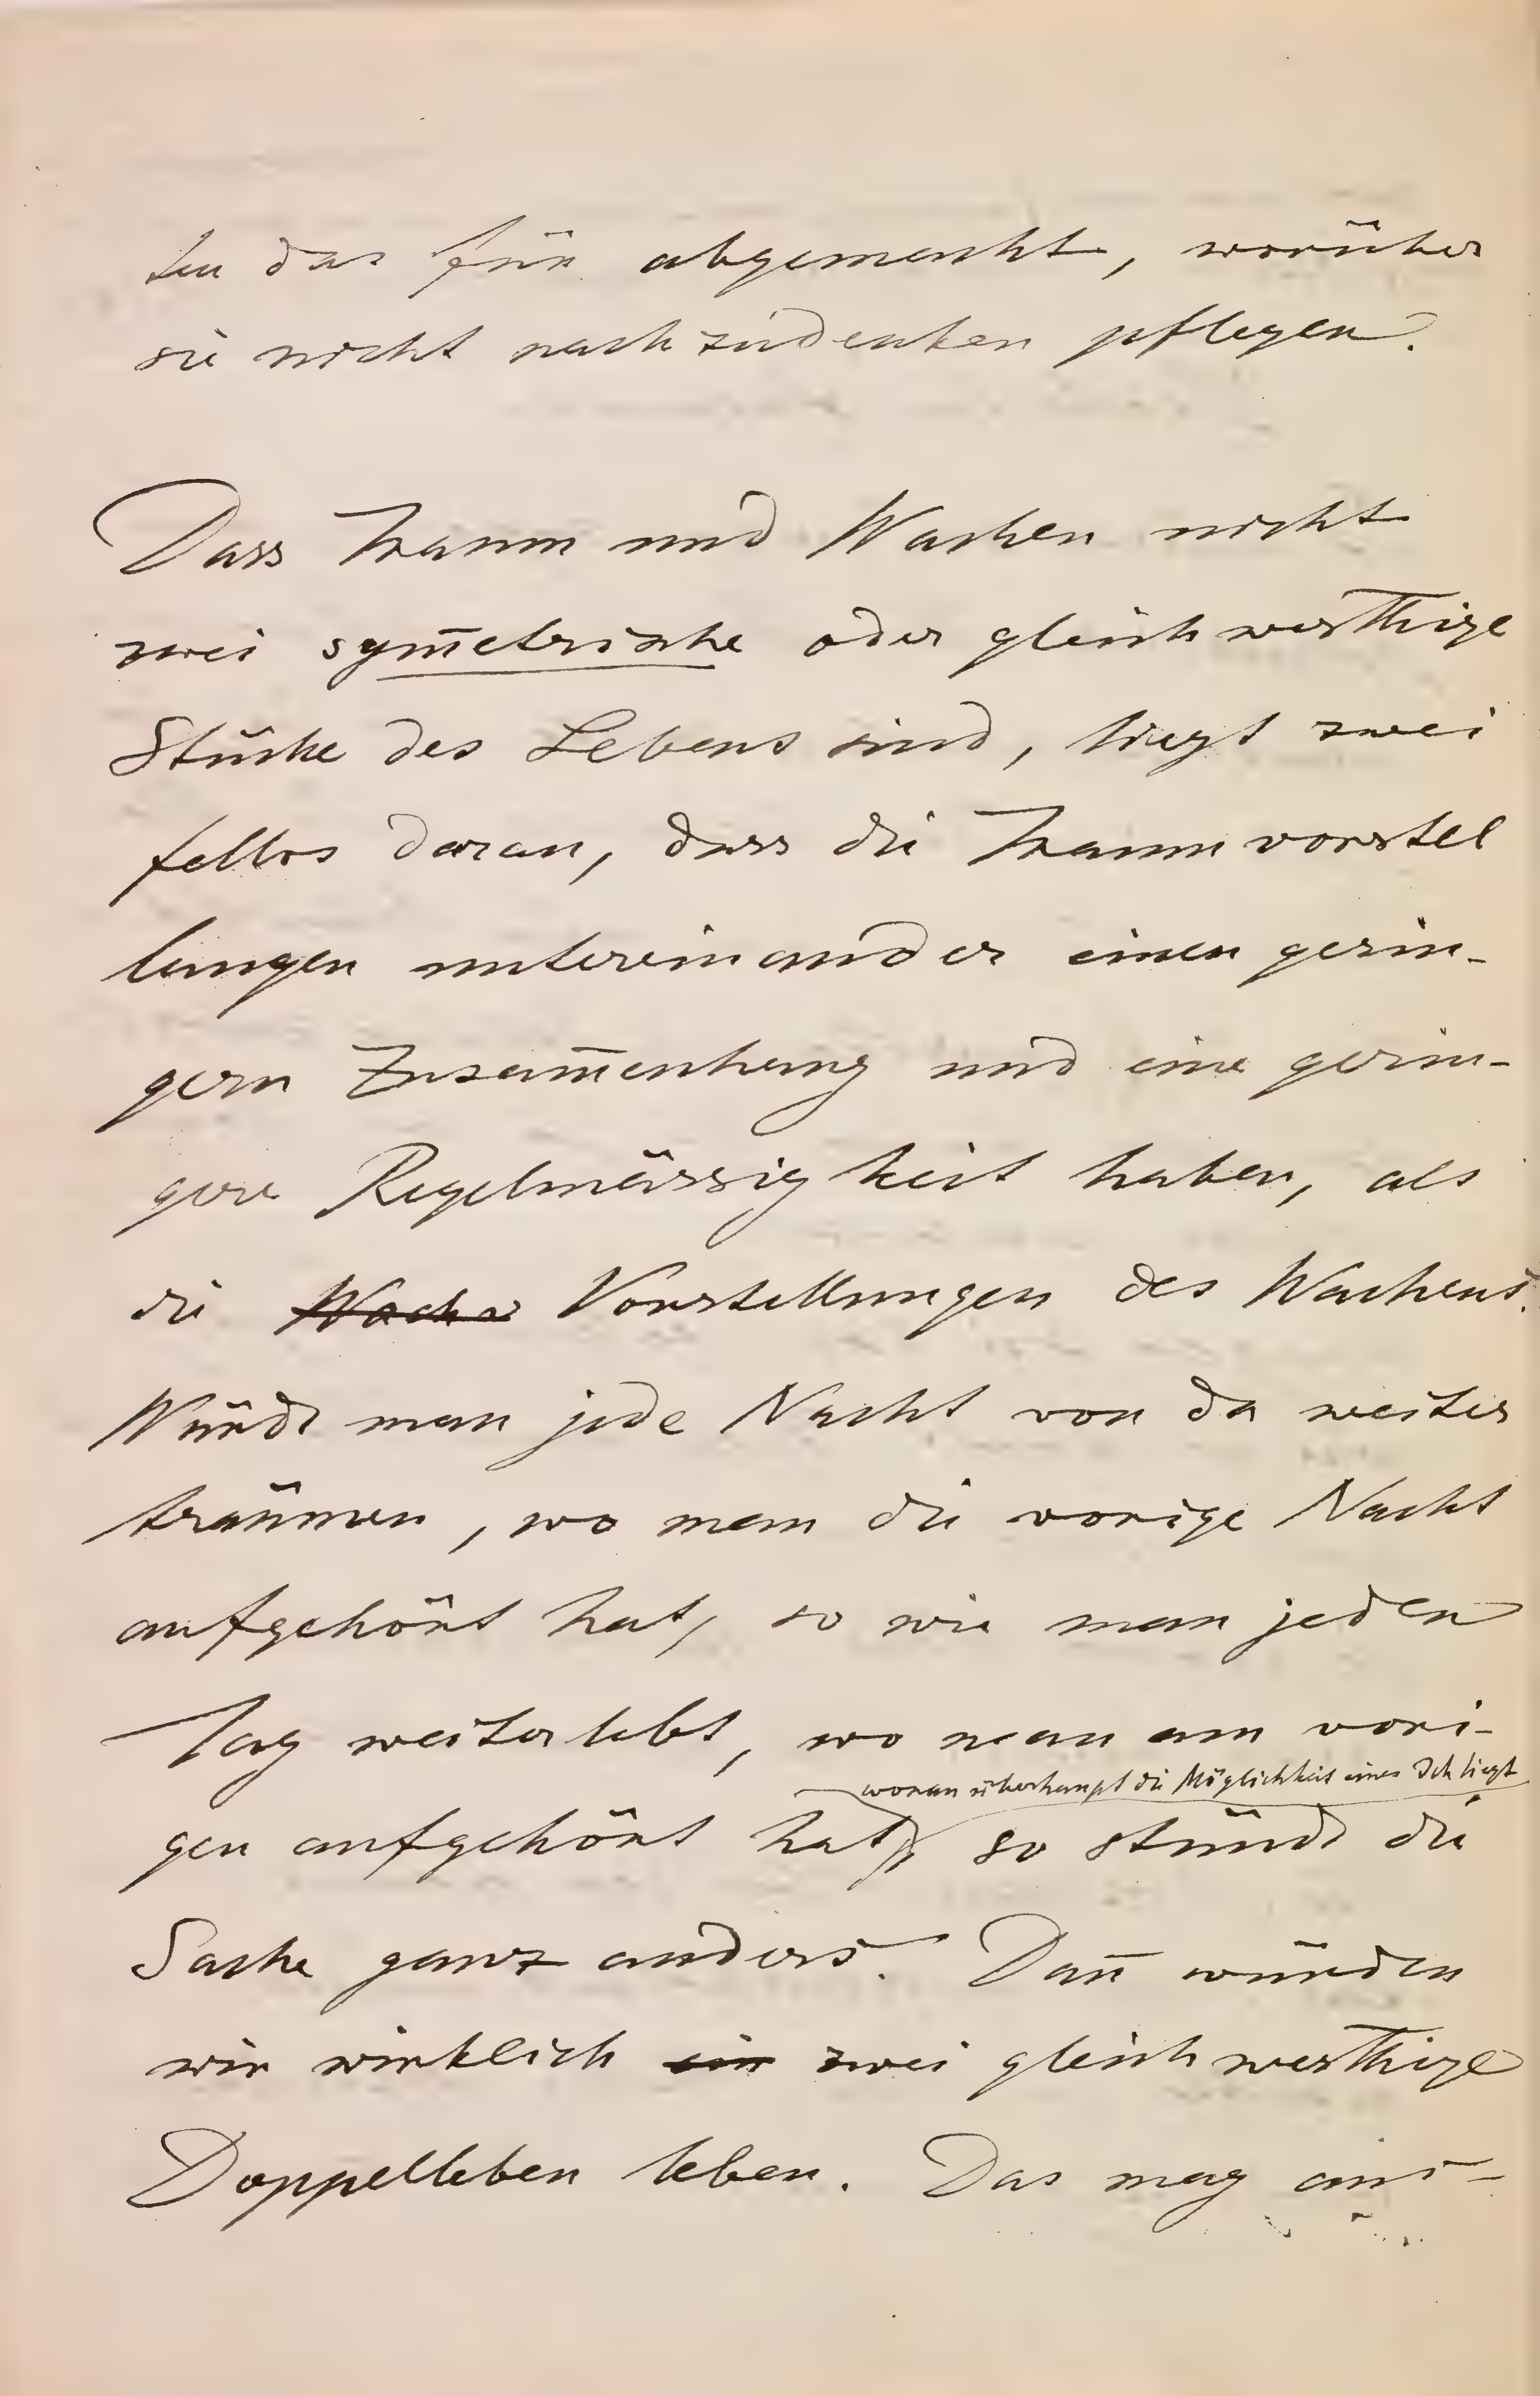 ten das für abgemacht, worüber
sie nicht nachzudenken pflegen.
Dass Traum und Wachen nicht
zwei sym̅etrische oder gleichwerthige
Stücke des Lebens sind, liegt zwei
fellos daran, dass die Traumvorstel
lungen untereinander einen gerin-
gern Zusam̅enhang und eine gerin-
gere Regelmässigkeit haben, als
die Wache Vorstellungen des Wachens.
Würde man jede Nacht von da weiter
träumen, wo man die vorige Nacht
aufgehört hat, so wie man jeden
Tag weiterlebt, wo man am vori-
woran überhaupt die Möglichkeit eines Ich liegt
gen aufgehört hat, so stünde die
Sache ganz anders. Dan̅ würden
wir wirklich ein zwei gleichwerthige
Doppelleben leben. Das mag aus-